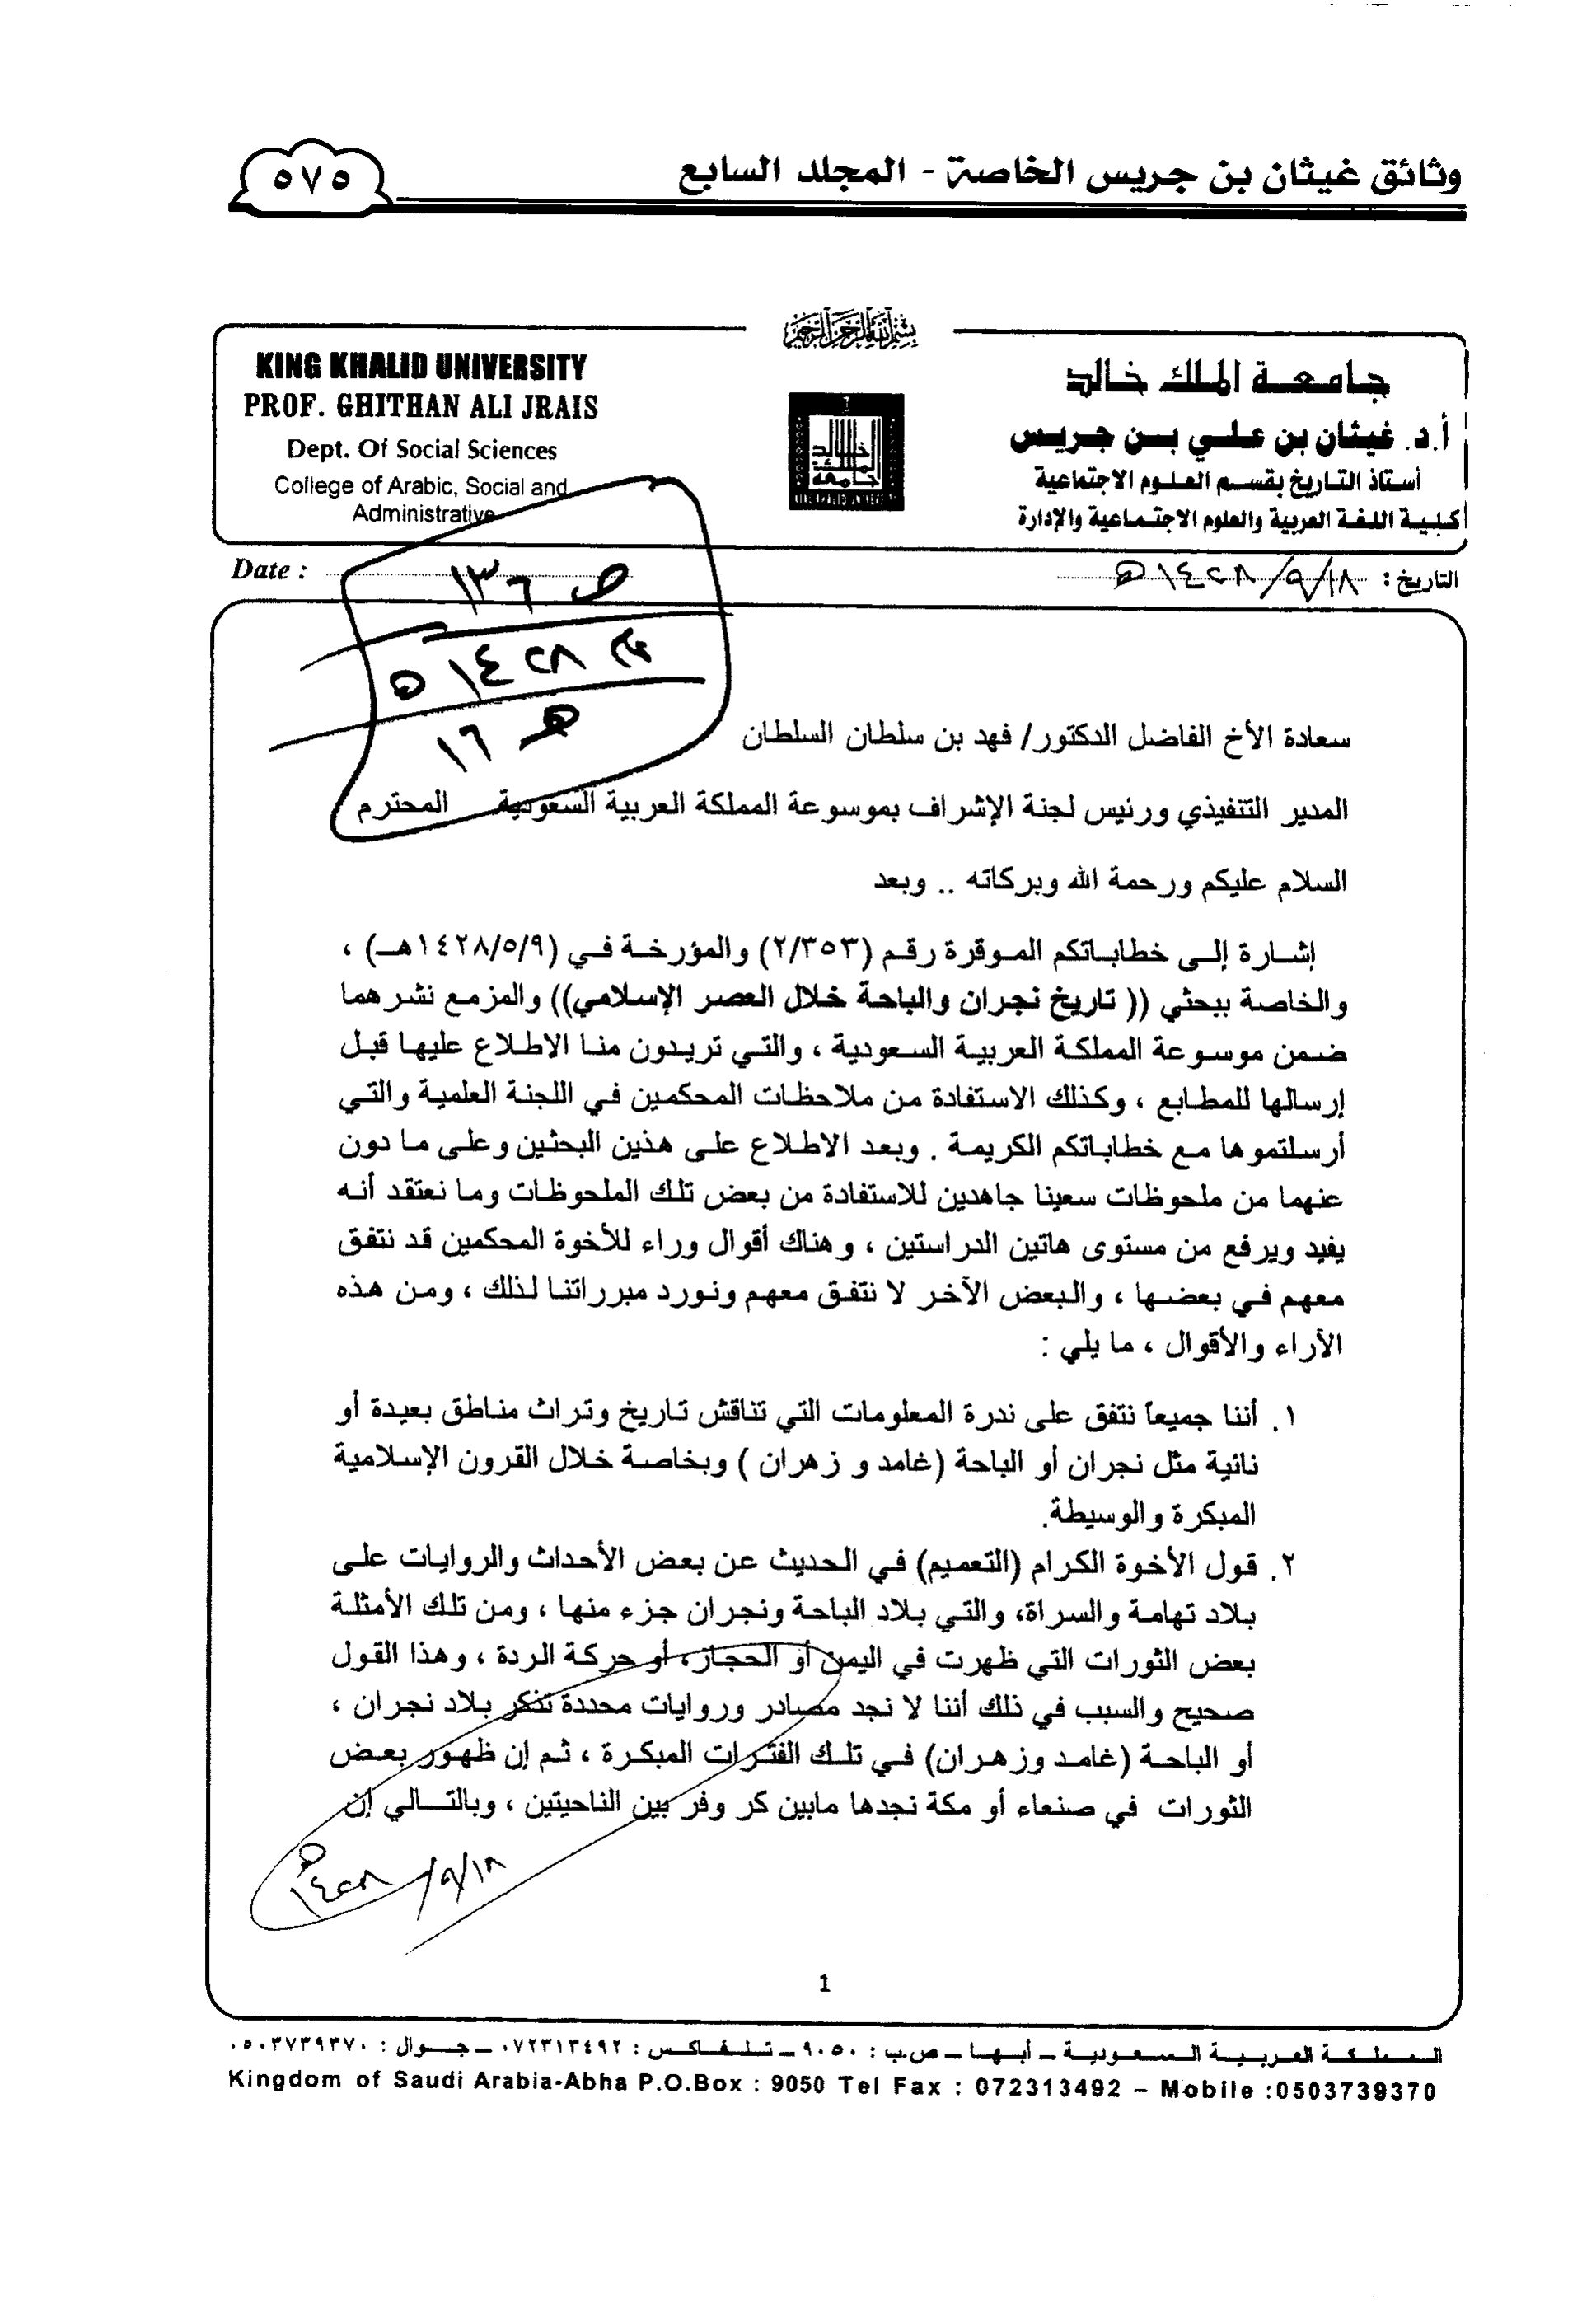 وثائق غيثان بن جريس الخاصة - المجلد السابع
٥٧٥
بسم الله الرحمن الرحيم
KING KHALID UNIVERSITY
PROF. GHITHAN ALI JRAIS
Dept. Of Social Sciences
College of Arabic, Social and
Administrative
جامعة الملك خالد
أ.د. غيثان بن علي بن جريس
أستاذ التاريخ بقسم العلوم الاجتماعية
كلية اللغة العربية والعلوم الاجتماعية والإدارة
جامعة الملك خالد
KING KHALID UNIVERSITY
Date :
التاريخ : ١٤٢٨/٩/١٨هـ
ص ١٣٦
١٤٢٨ هـ
هـ ١٦
سعادة الأخ الفاضل الدكتور/ فهد بن سلطان السلطان
المدير التنفيذي ورئيس لجنة الإشراف بموسوعة المملكة العربية السعودية المحترم
السلام عليكم ورحمة الله وبركاته .. وبعد
إشارة إلى خطاباتكم الموقرة رقم (٢/٣٥٣) والمؤرخة في (١٤٢٨/٥/٩هـ) ،
والخاصة ببحثي (( تاريخ نجران والباحة خلال العصر الإسلامي)) والمزمع نشرهما
ضمن موسوعة المملكة العربية السعودية ، والتي تريدون منا الاطلاع عليها قبل
إرسالها للمطابع ، وكذلك الاستفادة من ملاحظات المحكمين في اللجنة العلمية والتي
أرسلتموها مع خطاباتكم الكريمة . وبعد الاطلاع على هذين البحثين وعلى ما دون
عنهما من ملحوظات سعينا جاهدين للاستفادة من بعض تلك الملحوظات وما نعتقد أنه
يفيد ويرفع من مستوى هاتين الدراستين ، وهناك أقوال وراء للأخوة المحكمين قد نتفق
معهم في بعضها ، والبعض الآخر لا نتفق معهم ونورد مبرراتنا لذلك ، ومن هذه
الآراء والأقوال ، ما يلي :
١. أننا جميعاً نتفق على ندرة المعلومات التي تناقش تاريخ وتراث مناطق بعيدة أو
نائية مثل نجران أو الباحة (غامد و زهران ) وبخاصة خلال القرون الإسلامية
المبكرة والوسيطة.
٢. قول الأخوة الكرام (التعميم) في الحديث عن بعض الأحداث والروايات على
بلاد تهامة والسراة، والتي بلاد الباحة ونجران جزء منها ، ومن تلك الأمثلة
بعض الثورات التي ظهرت في اليمن أو الحجاز، أو حركة الردة ، وهذا القول
صحيح والسبب في ذلك أننا لا نجد مصادر وروايات محددة تذكر بلاد نجران ،
أو الباحة (غامد وزهران) في تلك الفترات المبكرة ، ثم إن ظهور بعض
الثورات في صنعاء أو مكة نجدها مابين كر وفر بين الناحيتين ، وبالتالي إن
١٤٢٨/٩/١٨هـ
1
المملكة العربية السعودية – أبها – ص.ب : ٩٠٥٠ – تلفاكس : ٠٧٢٣١٣٤٩٢ – جوال : ٠٥٠٣٧٣٩٣٧٠
Kingdom of Saudi Arabia-Abha P.O.Box : 9050 Tel Fax : 072313492 – Mobile :0503739370